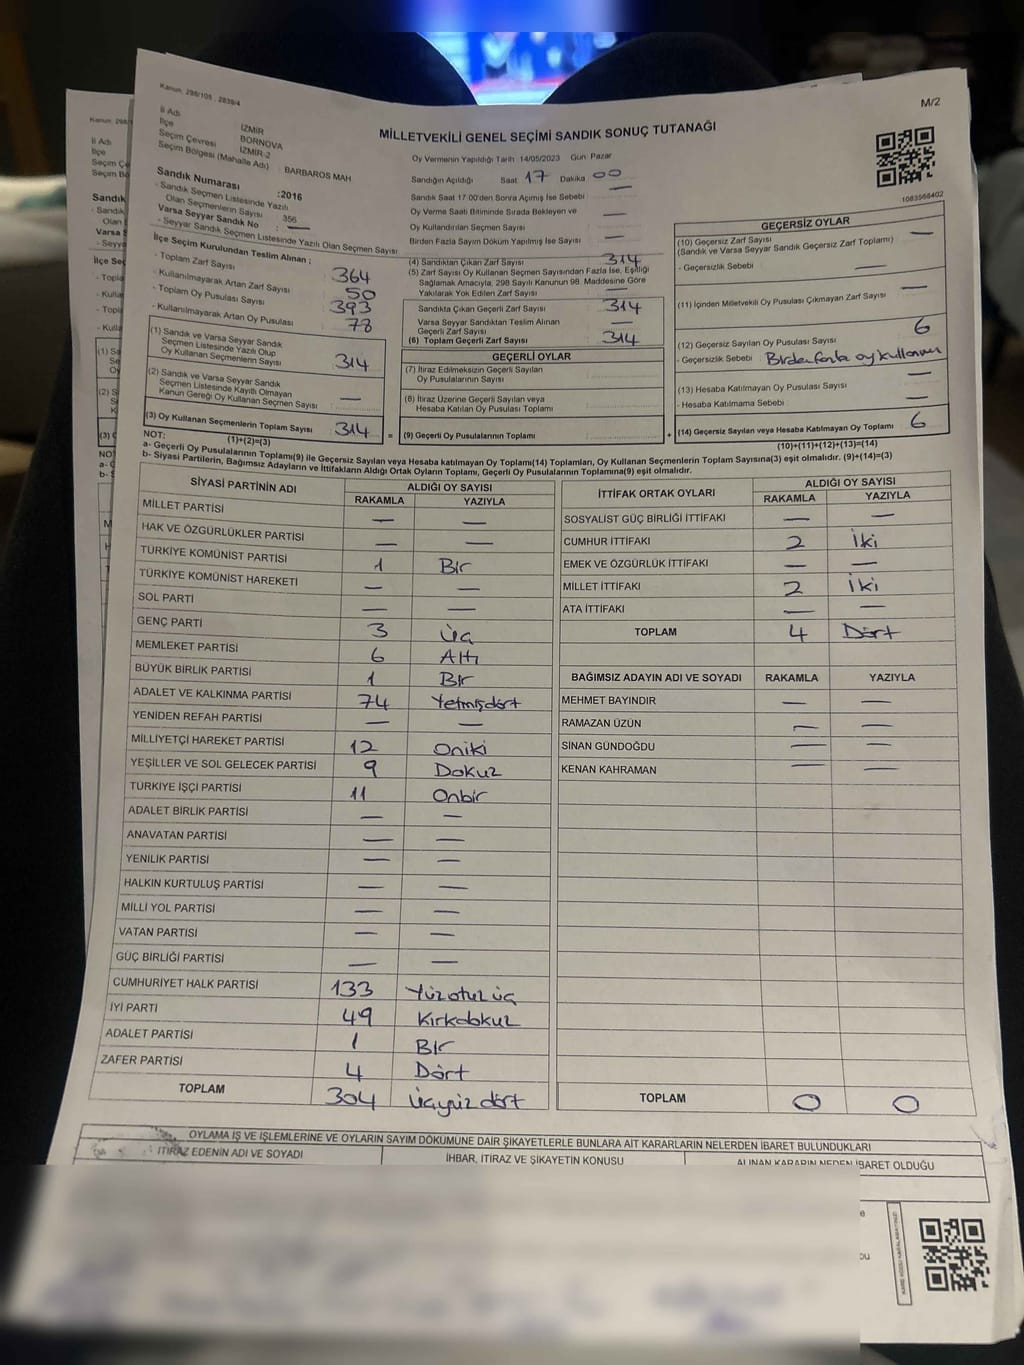 Kanun: 298/105 , 2839/4
M/2
MİLLETVEKİLİ GENEL SEÇİMİ SANDIK SONUÇ TUTANAĞI
İl Adı İZMİR
İlçe BORNOVA
Seçim Çevresi İZMİR-2
Seçim Bölgesi (Mahalle Adı) BARBAROS MAH
Sandık Numarası :2016
- Sandık Seçmen Listesinde Yazılı
Olan Seçmenlerin Sayısı 356
Varsa Seyyar Sandık No : —
- Seyyar Sandık Seçmen Listesinde Yazılı Olan Seçmen Sayısı
İlçe Seçim Kurulundan Teslim Alınan :
- Toplam Zarf Sayısı 364
- Kullanılmayarak Artan Zarf Sayısı 50
- Toplam Oy Pusulası Sayısı 393
- Kullanılmayarak Artan Oy Pusulası 78
(1) Sandık ve Varsa Seyyar Sandık
Seçmen Listesinde Yazılı Olup
Oy Kullanan Seçmenlerin Sayısı 314
(2) Sandık ve Varsa Seyyar Sandık
Seçmen Listesinde Kayıtlı Olmayan
Kanun Gereği Oy Kullanan Seçmen Sayısı —
(3) Oy Kullanan Seçmenlerin Toplam Sayısı 314
(1)+(2)=(3)
Oy Vermenin Yapıldığı Tarih 14/05/2023 Gün Pazar
Sandığın Açıldığı Saat 17 Dakika 00
Sandık Saat 17:00'den Sonra Açılmış İse Sebebi : —
Oy Verme Saati Bitiminde Sırada Bekleyen ve
Oy Kullandırılan Seçmen Sayısı —
Birden Fazla Sayım Döküm Yapılmış İse Sayısı —
(4) Sandıktan Çıkan Zarf Sayısı 314
(5) Zarf Sayısı Oy Kullanan Seçmen Sayısından Fazla İse, Eşitliği
Sağlamak Amacıyla, 298 Sayılı Kanunun 98. Maddesine Göre
Yakılarak Yok Edilen Zarf Sayısı —
Sandıkta Çıkan Geçerli Zarf Sayısı 314
Varsa Seyyar Sandıktan Teslim Alınan
Geçerli Zarf Sayısı —
(6) Toplam Geçerli Zarf Sayısı 314
GEÇERLİ OYLAR
(7) İtiraz Edilmeksizin Geçerli Sayılan
Oy Pusulalarının Sayısı
(8) İtiraz Üzerine Geçerli Sayılan veya
Hesaba Katılan Oy Pusulası Toplamı
= (9) Geçerli Oy Pusulalarının Toplamı +
1083568402
GEÇERSİZ OYLAR
(10) Geçersiz Zarf Sayısı —
(Sandık ve Varsa Seyyar Sandık Geçersiz Zarf Toplamı)
- Geçersizlik Sebebi : —
(11) İçinden Milletvekili Oy Pusulası Çıkmayan Zarf Sayısı —
(12) Geçersiz Sayılan Oy Pusulası Sayısı 6
- Geçersizlik Sebebi : Birden fazla oy kullanımı
(13) Hesaba Katılmayan Oy Pusulası Sayısı —
- Hesaba Katılmama Sebebi : —
(14) Geçersiz Sayılan veya Hesaba Katılmayan Oy Toplamı 6
(10)+(11)+(12)+(13)=(14)
NOT:
a- Geçerli Oy Pusulalarının Toplamı(9) ile Geçersiz Sayılan veya Hesaba katılmayan Oy Toplamı(14) Toplamları, Oy Kullanan Seçmenlerin Toplam Sayısına(3) eşit olmalıdır. (9)+(14)=(3)
b- Siyasi Partilerin, Bağımsız Adayların ve İttifakların Aldığı Ortak Oyların Toplamı, Geçerli Oy Pusulalarının Toplamına(9) eşit olmalıdır.
SİYASİ PARTİNİN ADI ALDIĞI OY SAYISI
RAKAMLA YAZIYLA
MİLLET PARTİSİ — —
HAK VE ÖZGÜRLÜKLER PARTİSİ — —
TÜRKİYE KOMÜNİST PARTİSİ 1 Bir
TÜRKİYE KOMÜNİST HAREKETİ — —
SOL PARTİ — —
GENÇ PARTİ 3 Üç
MEMLEKET PARTİSİ 6 Altı
BÜYÜK BİRLİK PARTİSİ 1 Bir
ADALET VE KALKINMA PARTİSİ 74 Yetmişdört
YENİDEN REFAH PARTİSİ — —
MİLLİYETÇİ HAREKET PARTİSİ 12 Oniki
YEŞİLLER VE SOL GELECEK PARTİSİ 9 Dokuz
TÜRKİYE İŞÇİ PARTİSİ 11 Onbir
ADALET BİRLİK PARTİSİ — —
ANAVATAN PARTİSİ — —
YENİLİK PARTİSİ — —
HALKIN KURTULUŞ PARTİSİ — —
MİLLİ YOL PARTİSİ — —
VATAN PARTİSİ — —
GÜÇ BİRLİĞİ PARTİSİ — —
CUMHURİYET HALK PARTİSİ 133 Yüzotuzüç
İYİ PARTİ 49 Kırkdokuz
ADALET PARTİSİ 1 Bir
ZAFER PARTİSİ 4 Dört
TOPLAM 304 Üçyüzdört
İTTİFAK ORTAK OYLARI ALDIĞI OY SAYISI
RAKAMLA YAZIYLA
SOSYALİST GÜÇ BİRLİĞİ İTTİFAKI — —
CUMHUR İTTİFAKI 2 İki
EMEK VE ÖZGÜRLÜK İTTİFAKI — —
MİLLET İTTİFAKI 2 İki
ATA İTTİFAKI — —
TOPLAM 4 Dört
BAĞIMSIZ ADAYIN ADI VE SOYADI RAKAMLA YAZIYLA
MEHMET BAYINDIR — —
RAMAZAN ÜZÜN — —
SİNAN GÜNDOĞDU — —
KENAN KAHRAMAN — —
TOPLAM 0 0
OYLAMA İŞ VE İŞLEMLERİNE VE OYLARIN SAYIM DÖKÜMÜNE DAİR ŞİKAYETLERLE BUNLARA AİT KARARLARIN NELERDEN İBARET BULUNDUKLARI
İTİRAZ EDENİN ADI VE SOYADI İHBAR, İTİRAZ VE ŞİKAYETİN KONUSU ALINAN KARARIN NEDEN İBARET OLDUĞU